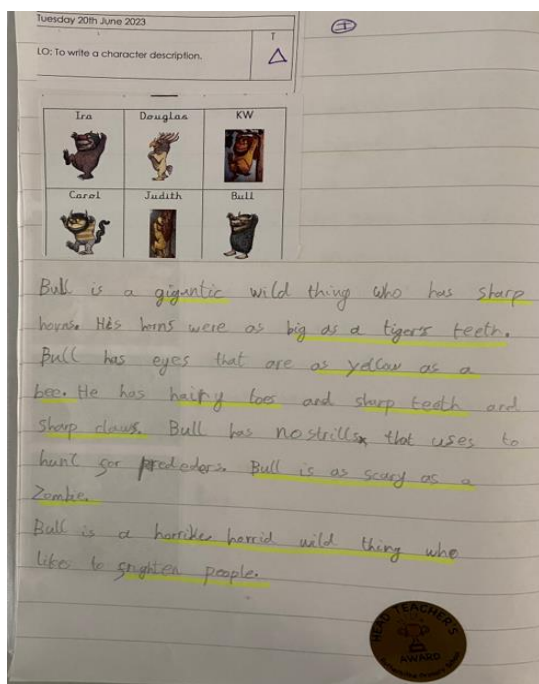 Tuesday 20th June 2023
T
I
LO: To write a character description.
Ira Douglas KW
Carol Judith Bull
Bull is a gigantic wild thing who has sharp
horns. His horns were as big as a tiger's teeth.
Bull has eyes that are as yellow as a
bee. He has hairy toes and sharp teeth and
sharp claws. Bull has nostrills that uses to
hunt for prededers. Bull is as scary as a
Zombie.
Bull is a horrible horrid wild thing who
likes to frighten people.
HEAD TEACHER'S
AWARD